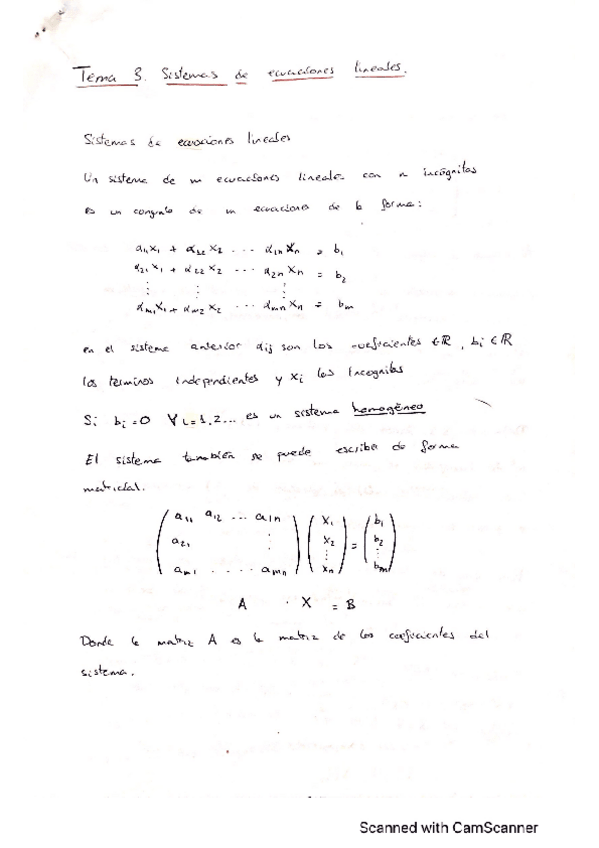 Tema 3. Sistemas de ecuaciones lineales.
Sistemas de ecuaciones lineales
Un sistema de m ecuaciones lineales con n incógnitas
es un conjunto de m ecuaciones de la forma:
a₁₁x₁ + α₁₂ x₂ ... α₁ₙ xₙ = b₁
a₂₁ x₁ + α₂₂ x₂ ... α₂ₙ xₙ = b₂
⋮ ⋮ ⋮
αₘ₁x₁ + αₘ₂ x₂ ... αₘₙ xₙ = bₘ
en el sistema anterior αij son los coeficientes ∈ ℝ, bi ∈ ℝ
los terminos independientes y xi las Incognitas
Si bi = 0 ∀ i = 1.2... es un sistema homogéneo
El sistema también se puede escribir de forma
matricial.
( a₁₁ a₁₂ ... a₁n ) ( x₁ ) ( b₁ )
( a₂₁ ⋮ ) ( x₂ ) = ( b₂ )
( ⋮ ) ( ⋮ )
( am₁ ..... amn ) ( xn ) ( bm )
A · X = B
Donde la matriz A es la matriz de los coeficientes del
sistema.
Scanned with CamScanner